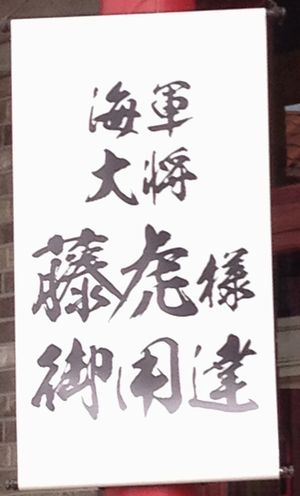 海軍
大将
藤虎様
御用達